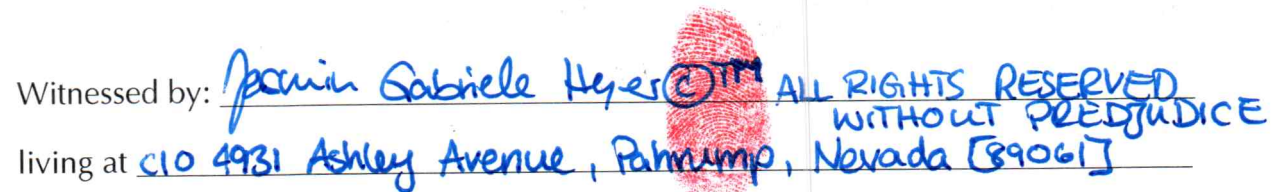 Witnessed by: Jasmin Gabriele Heyer ©™ ALL RIGHTS RESERVED
WITHOUT PREDJUDICE
living at c/o 4931 Ashley Avenue, Pahrump, Nevada [89061]